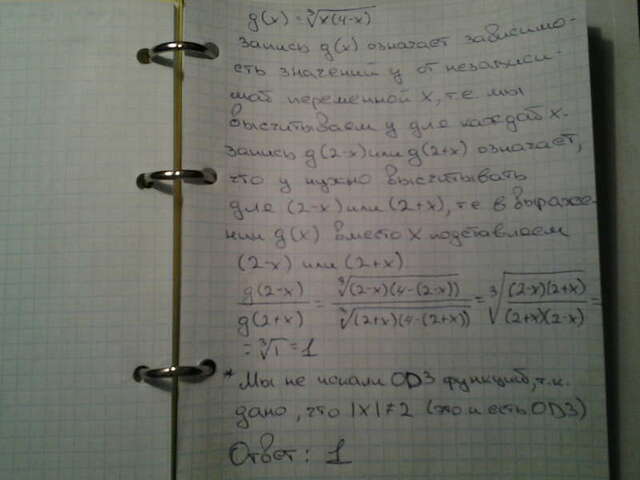 g(x) = ∛x(4-x)
запись g(x) означает зависимо-
сть значений у от независи-
мой переменной х, т.е. мы
высчитываем у для каждой х.
запись g(2-x) или g(2+x) означает,
что у нужно высчитывать
для (2-x) или (2+x), т.е в выраже-
нии g(x) вместо х подставляем
(2-x) или (2+x)
g(2-x)/g(2+x) = ∛(2-x)(4-(2-x))/∛(2+x)(4-(2+x)) = ∛(2-x)(2+x)/(2+x)(2-x) =
= ∛1 = 1
* Мы не искали ОДЗ функций, т.к.
дано, что |x| ≠ 2 (это и есть ОДЗ)
Ответ: 1